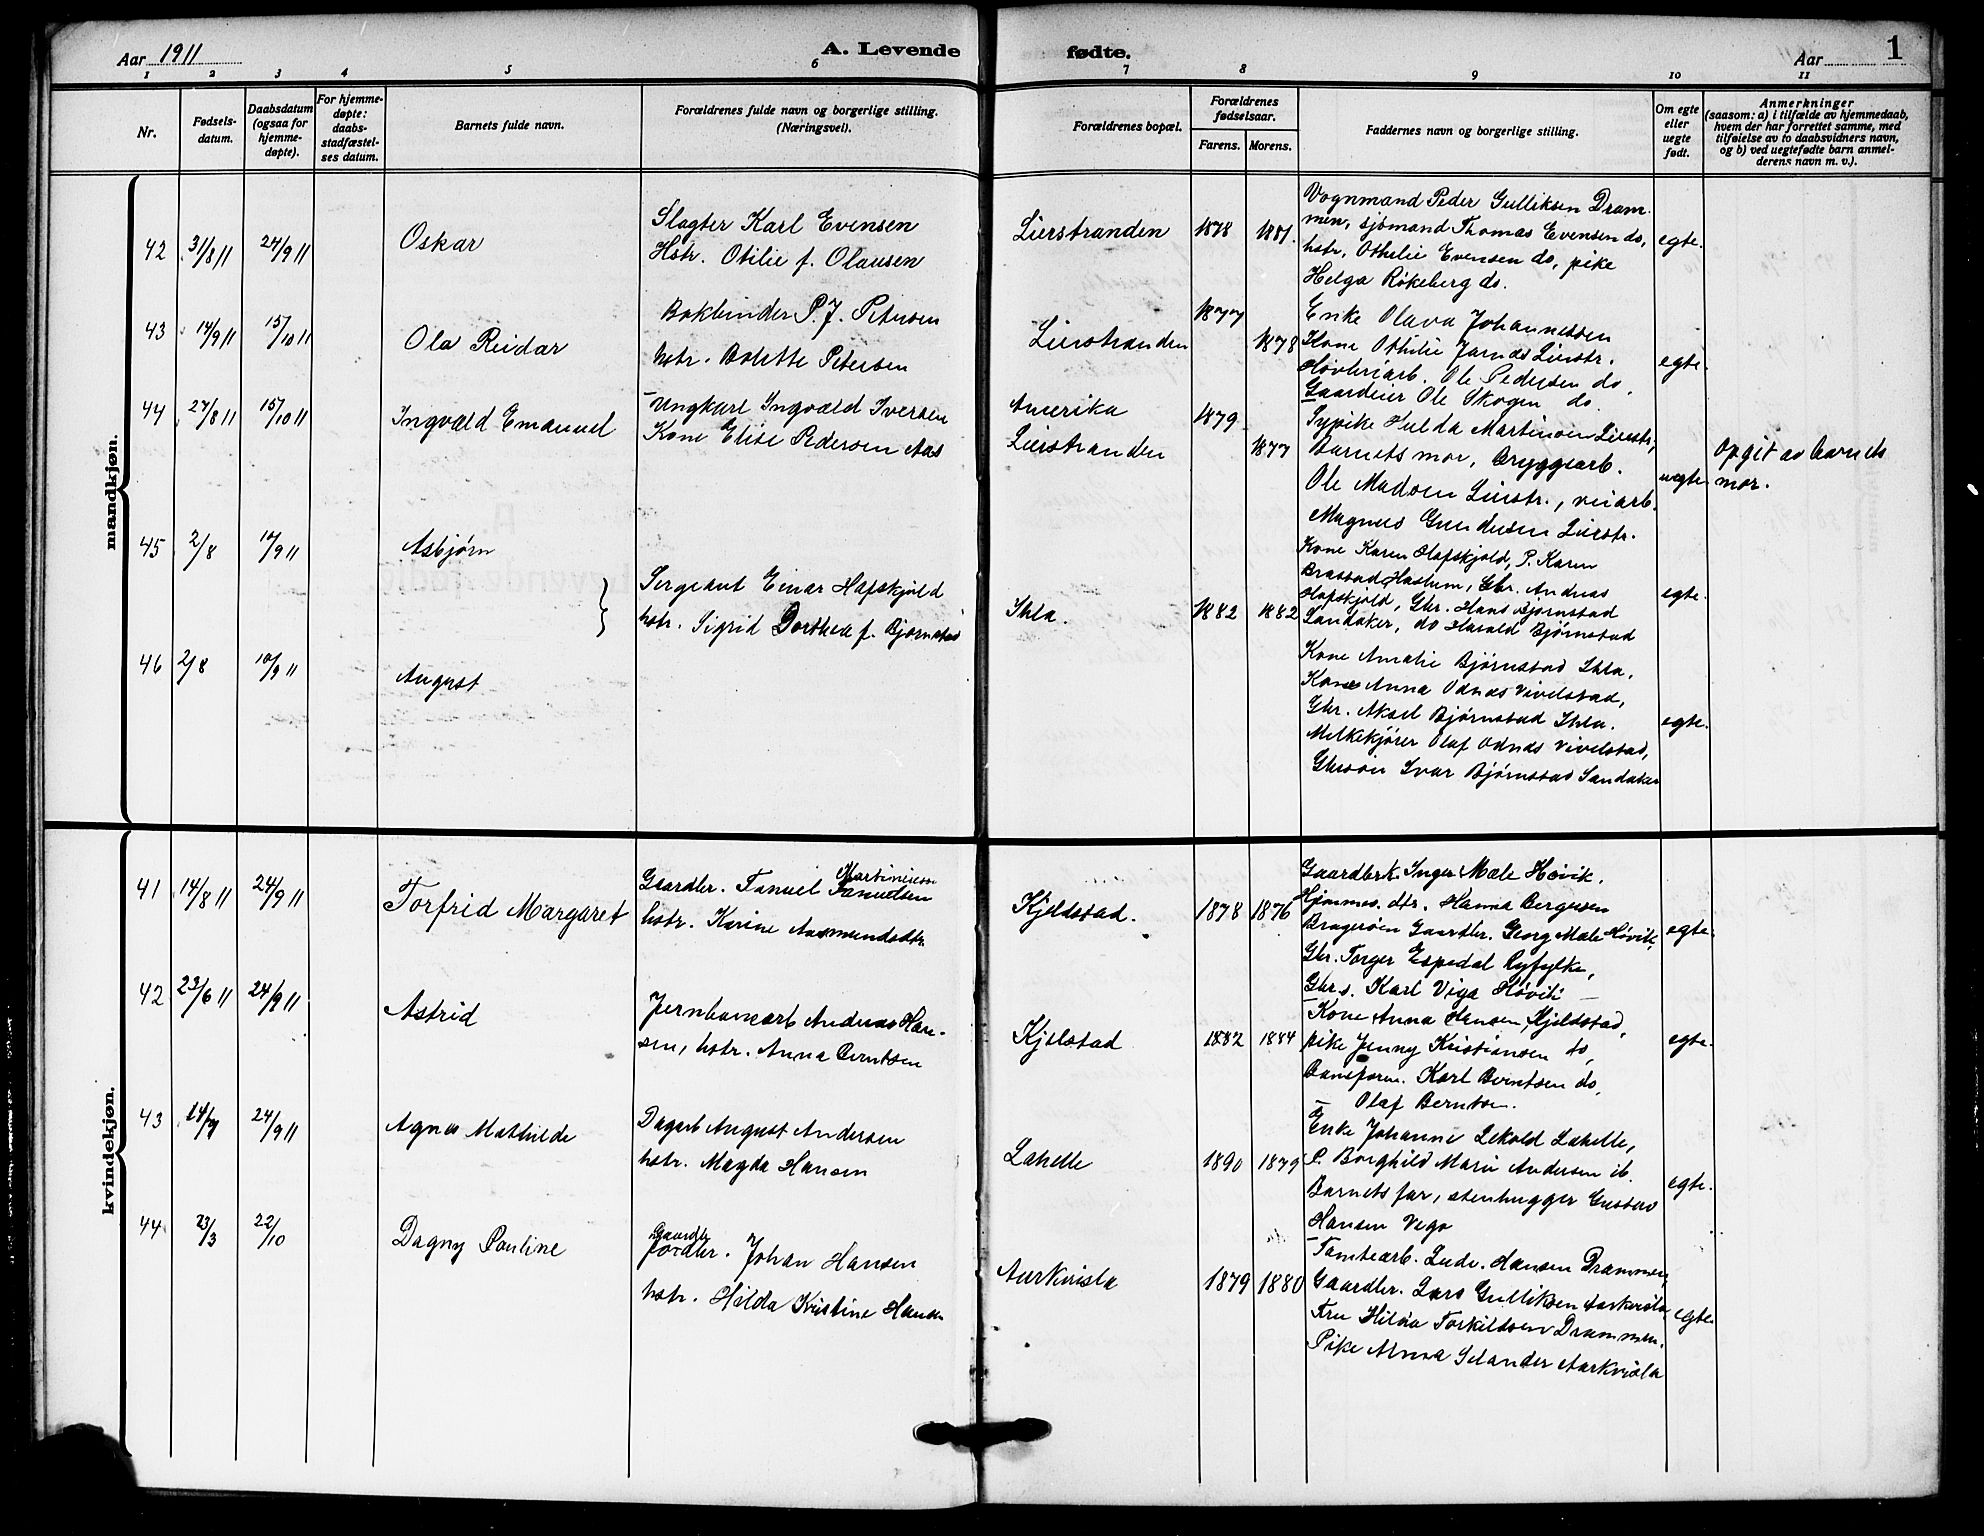 Aar 1911
A. Levende
fødte.
Aar
1
1
2
3
4
5
6
7
8
9
10
11
Nr.
Fødsels-
datum.
Daabsdatum
(ogsaa for
hjemme-
døpte).
For hjemme-
døpte:
daabs-
stadfæstel-
ses datum.
Barnets fulde navn.
Forældrenes fulde navn og borgerlige stilling.
(Næringsvei).
Forældrenes bopæl.
Forældrenes
fødselsaar.
Farens.
Morens.
Faddernes navn og borgerlige stilling.
Om egte
eller
uegte
født.
Anmerkninger
(saasom: a) i tilfælde av hjemmedaab,
hvem der har forrettet samme, med
tilføielse av to daabsvidners navn,
og b) ved uegtefødte barn anmel-
derens navn m. v.).
mandkjøn.
42
31/8 11
24/9 11
Oskar
Slagter Karl Evensen
Hstr. Otilie f. Olausen
Lierstranden
1878
1881.
Vognmand Peder Gulliksen Dram-
men, sjømand Thomas Evensen do,
hstr. Othelie Evensen do, pike
Helga Røkeberg do.
egte.
43
14/9 11
15/10 11
Ola Reidar
Bokbinder P. J. Petersen
hstr. Bolette Petersen
Lierstranden
1877
1878
Enke Olava Johannessen
Kone Othilie Lierstr.
Høvleriarb. Ole Pedersen do,
Gaardeier Ole Skogen do.
egte.
44
27/8 11
15/10 11
Ingvald Emanuel
Ungkarl Ingvald Iversen
Kone Elise Pedersen Aas
Amerika
Lierstranden
1879
1877
Sypike Hulda Martinsen Lierstr,
Barnets mor, Bryggearb.
Ole Madsen Lierstr., veiarb.
Magnus Gundersen Lierstr.
uegte
Opgit av barnets
mor.
45
2/8
10/9 11
Asbjørn
Sergeant Einar Hafskjold
hstr. Sigrid Dorthea f. Bjørnstad
Ihla.
1882
1882
Kone Karen Hafskjold, P. Karen
Brastad Haslum, Gbr. Andreas
Hafskjold, Gbr. Hans Bjørnstad
Sandaker, do Harald Bjørnstad
egte.
46
2/8
10/9 11
August
Kone Amalie Bjørnstad Ihla.
Kone Anna Odnæs Vivelstad,
Gbr. Aksel Bjørnstad Ihla.
Melkekjører Olaf Odnæs Vivelstad,
Gbrsøn Ivar Bjørnstad Sandaker
egte.
kvindekjøn.
41
14/8 11
24/9 11
Torfrid Margaret
Martiniusen
Gaardbr. Fanuel Fanuelsen
hstr. Karine Aasmundsdtr
Kjeldstad.
1878
1876
Gaardbrk. Inger Mæle Høvik.
Hjemmev. dtr. Hanna Bergesen
Bragerøen Gaardbr. Georg Mæle Høvik,
Gbr. Torger Espedal Ryfylke,
Gbr s. Karl Viga Høvik
egte.
42
23/6 11
24/9 11
Astrid
Jernbanearb Andreas Han-
sen, hstr. Anna Berntsen
Kjelstad
1882
1884
Kone Anna Hansen, Kjeldstad,
pike Jenny Kristiansen do,
Baneform. Karl Berntsen do,
Olaf Berntsen.
egte.
43
24/9 11
Agnes Mathilde
Dagarb August Andersen
hstr. Magda Hansen
Lahelle
1890
1879
Enke Johanne Lekold Lahelle,
P. Borghild Marie Andersen ib.
Barnets far, stenhugger Gustav
Hansen Vego
egte.
44
23/3
22/10
Dagny Pauline
Gaardbr
Johan Hansen
hstr. Hilda Kristine Hansen
Aarkvisla
1879
1880
Tomtearb. Ludv. Hansen Drammen,
Gaardbr. Lars Gulliksen Aarkvisla
Fru Hilda Torkildsen Drammen.
Pike Anna Selander Aarkvisla
egte